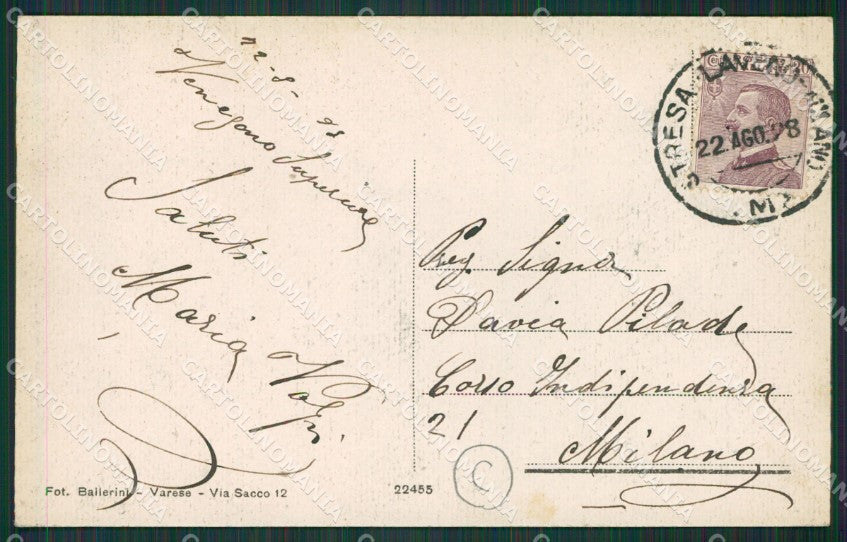 22-8-28
Venegono Superiore
Saluti
Maria Volpi
Fot. Ballerini - Varese - Via Sacco 12
22455
STRESA-LAVENO-MILANO
22.AGO.28
Preg. Signor
Pavia Pilade
Corso Indipendenza
21
Milano
C
CARTOLINOMANIA